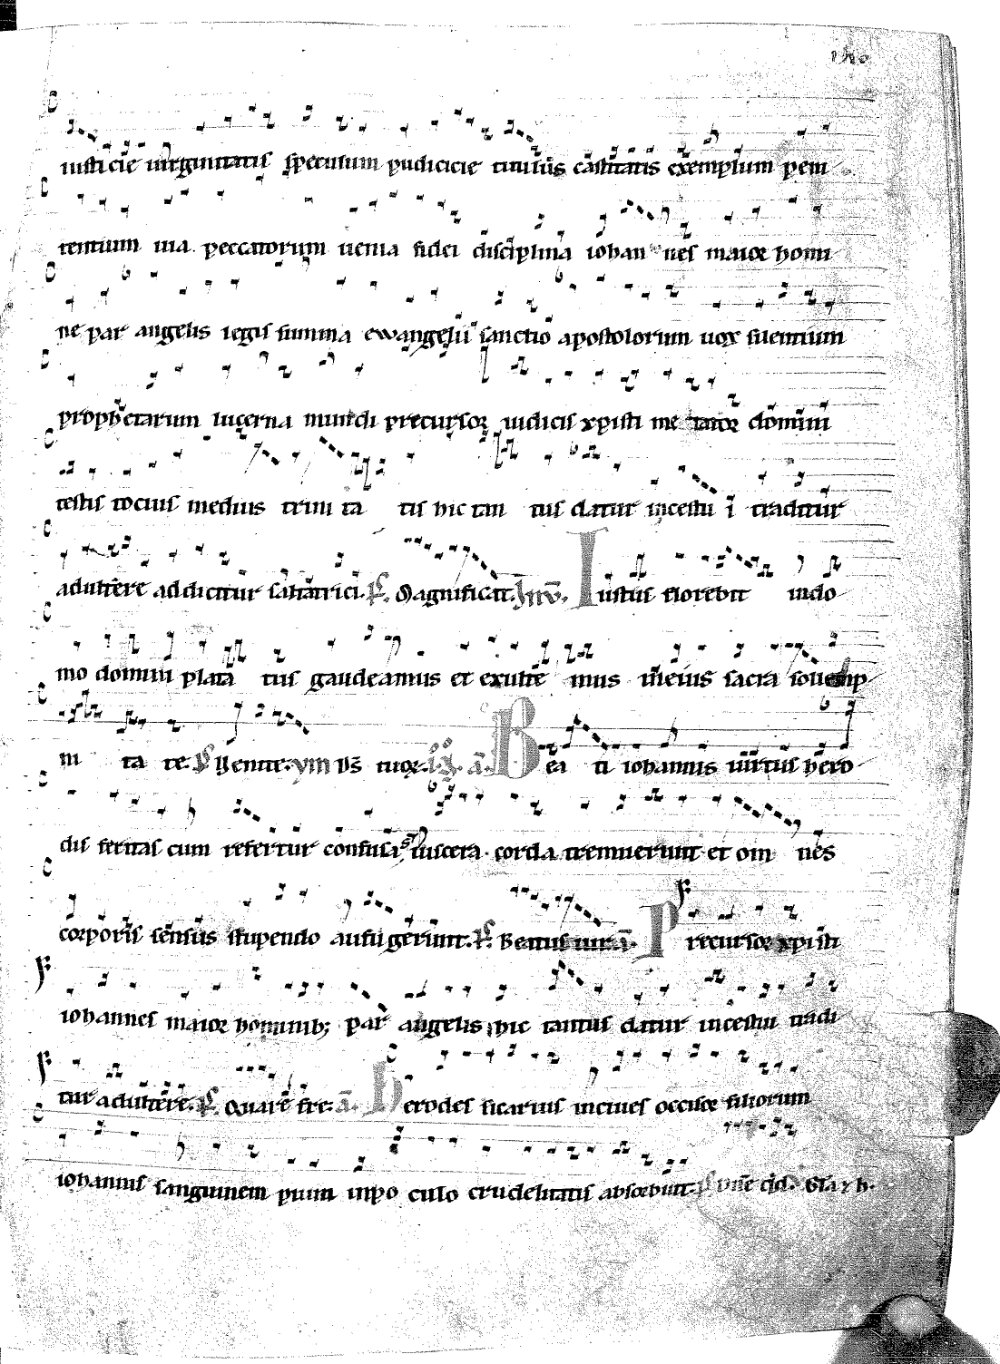 iusticie uirginitatis speculum pudicicie titulus castitatis exemplum peni
tentium uia peccatorum uenia fidei disciplina iohan nes maior homi
ne par angelis legis summa ewangelii sanctio apostolorum uox silentium
prophetarum lucerna mundi precursor iudicis xpisti me tator domini
testis tocius medius trini ta tis hic tan tus datur incestui traditur
adultere addicitur saltatrici. Magnificat. Iustus florebit in do
mo domini plata tus gaudeamus et exulte mus in eius sacra solemp
ni ta te. Venite. Bea ti iohannis uirtus hero
dis feritas cum refertur confusa uiscera corda tremuerunt et om nes
corporis sensus stupendo aufugerunt. Beatus uir. Precursor xpisti
iohannes maior hominib; par angelis hic tantus datur incestui tradi
tur adultere. Quare fre. a. Herodes sicarius inciues occisor filiorum
iohannis sanguinem pium in po culo crudelitatis absorbuit.